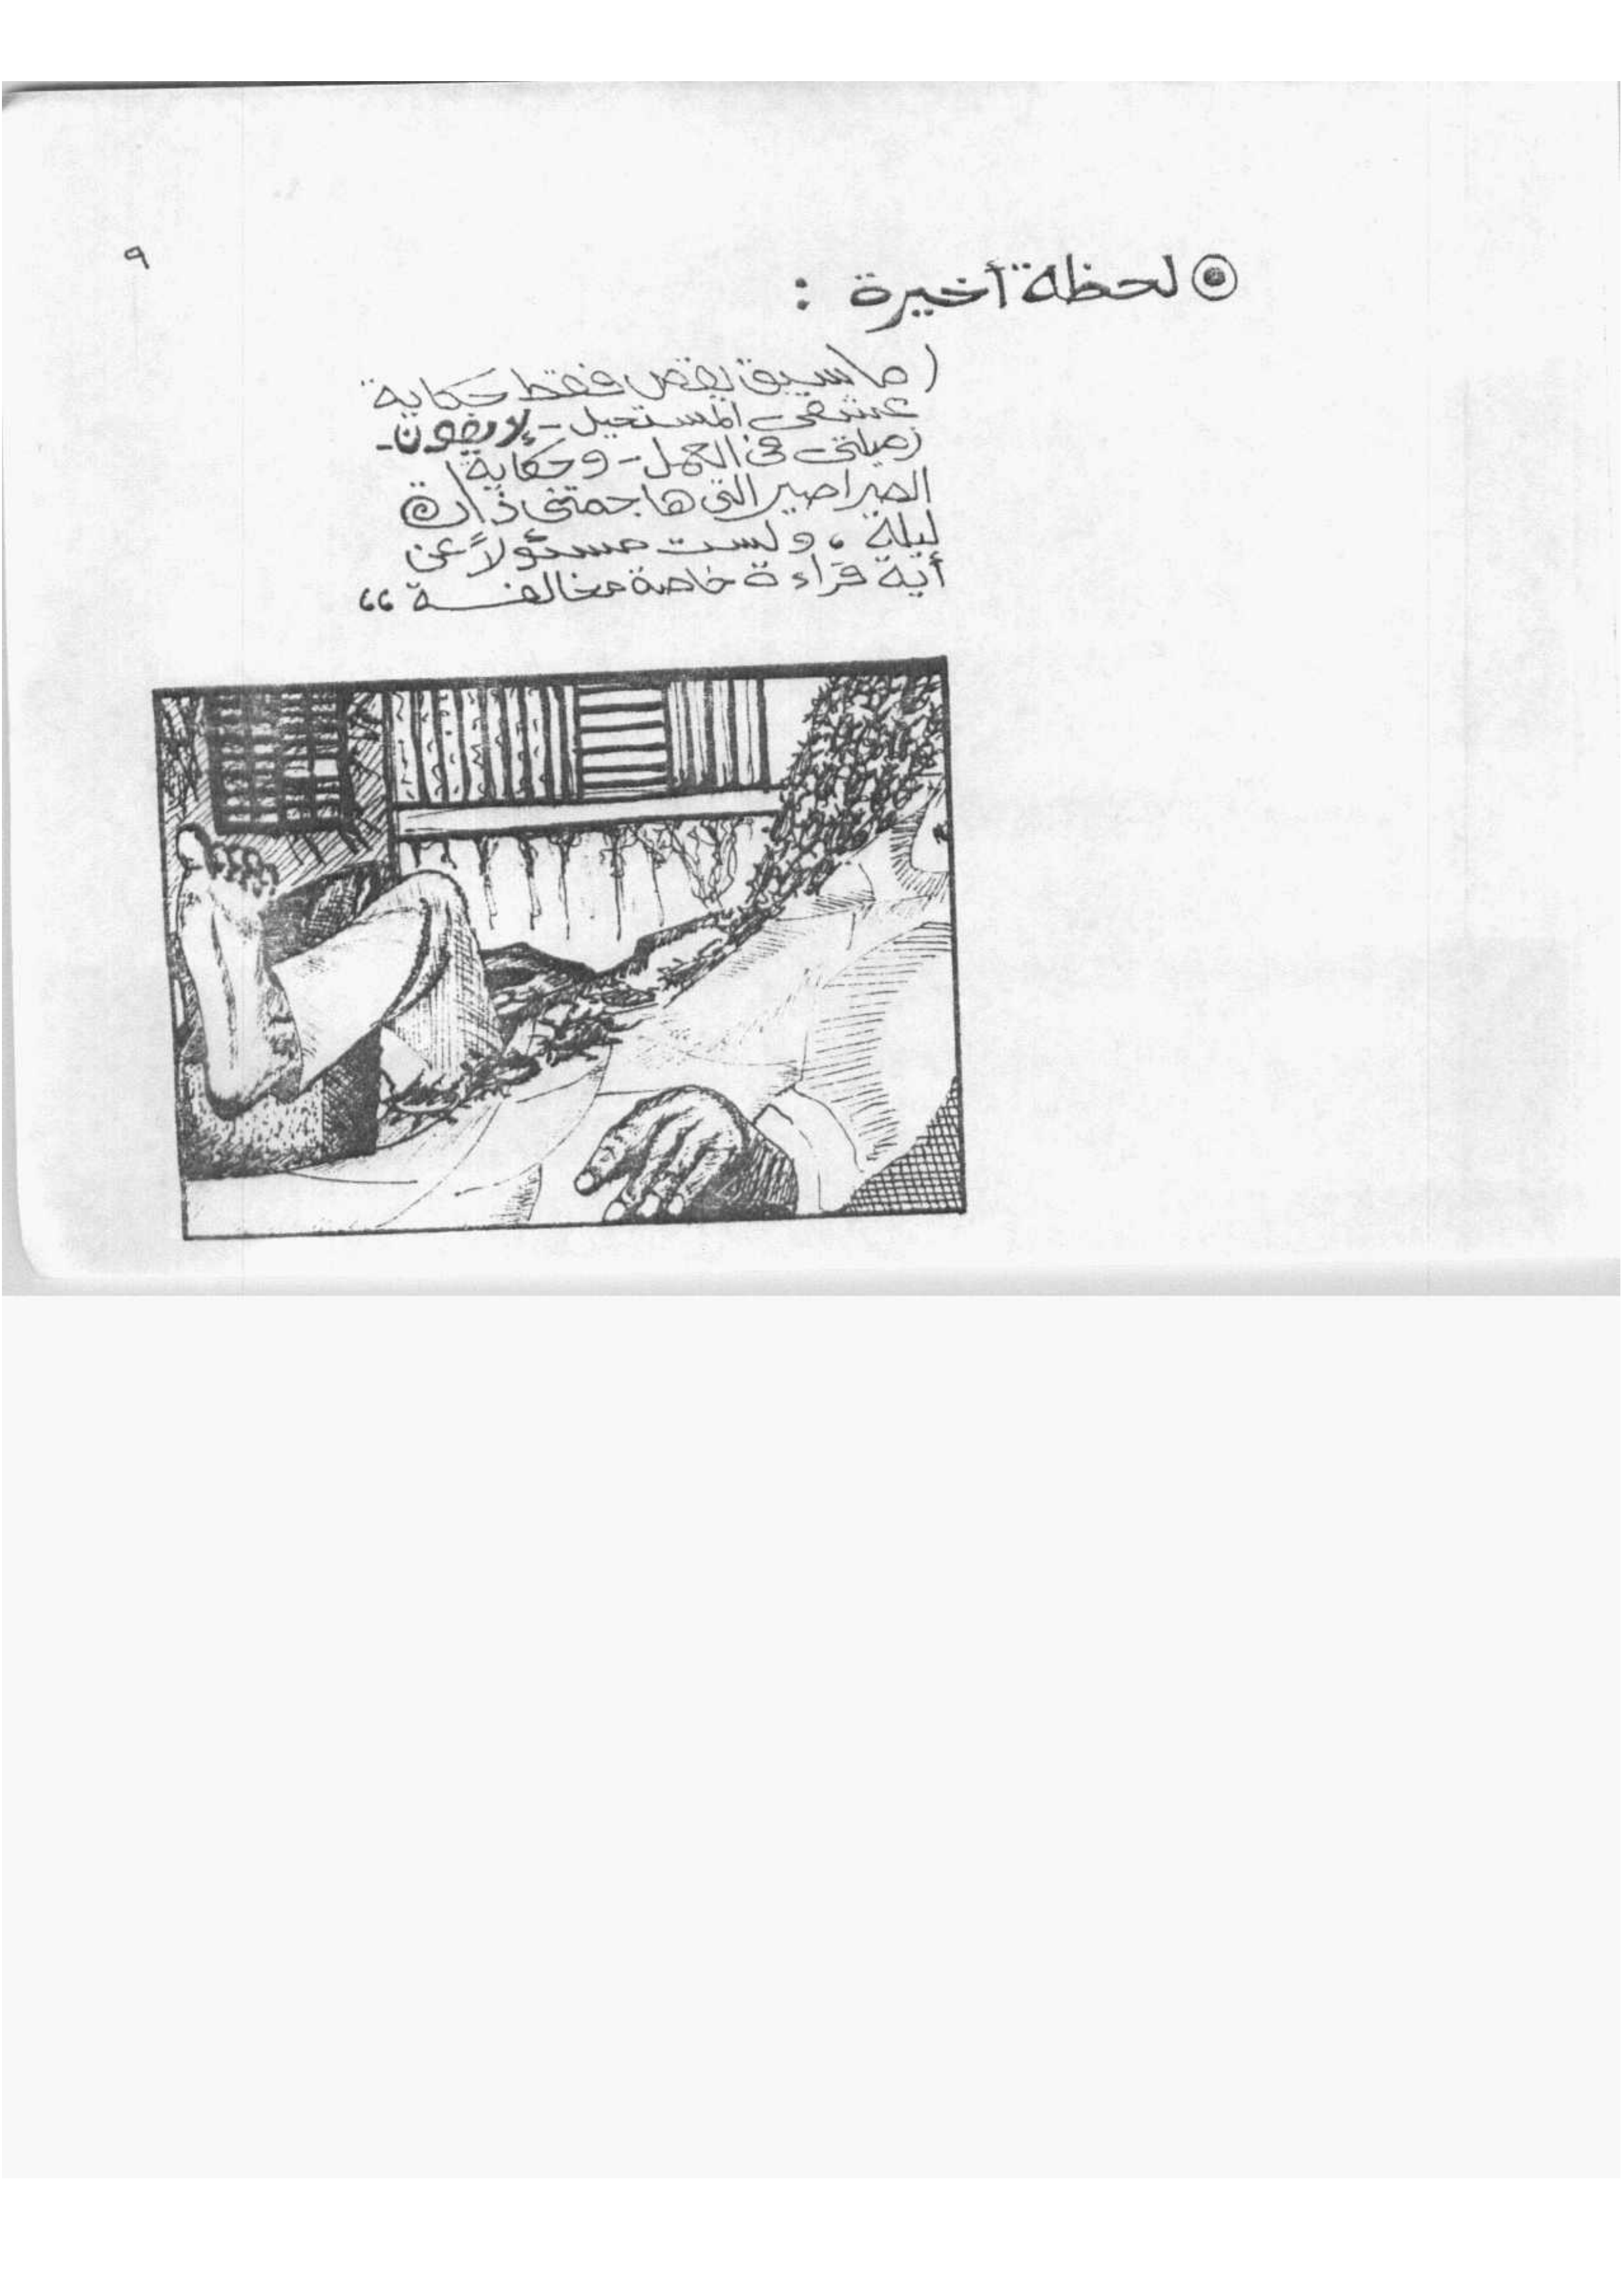 ٩
◉ لحظة أخيرة :
( ما سبق يقص فقط حكاية
عشقى المستحيل - لإيفون -
زميلتى فى العمل - وحكاية
الصراصير التى هاجمتنى ذات
ليلة ، ولست مسئولاً عن
أية قراءة خاصة مخالفة “